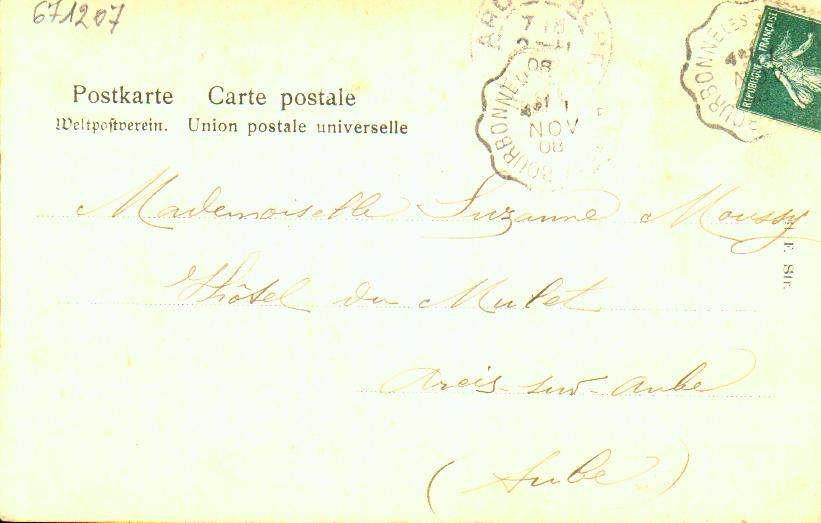 671207
7 15
08
NOV
08
BOURBONNE LES
REPUBLIQUE FRANÇAISE
Postkarte Carte postale
Weltpostverein. Union postale universelle
Mademoiselle Suzanne Moussy
Hôtel du Mulet
Arcis-sur-Aube
(Aube)
F. Str.